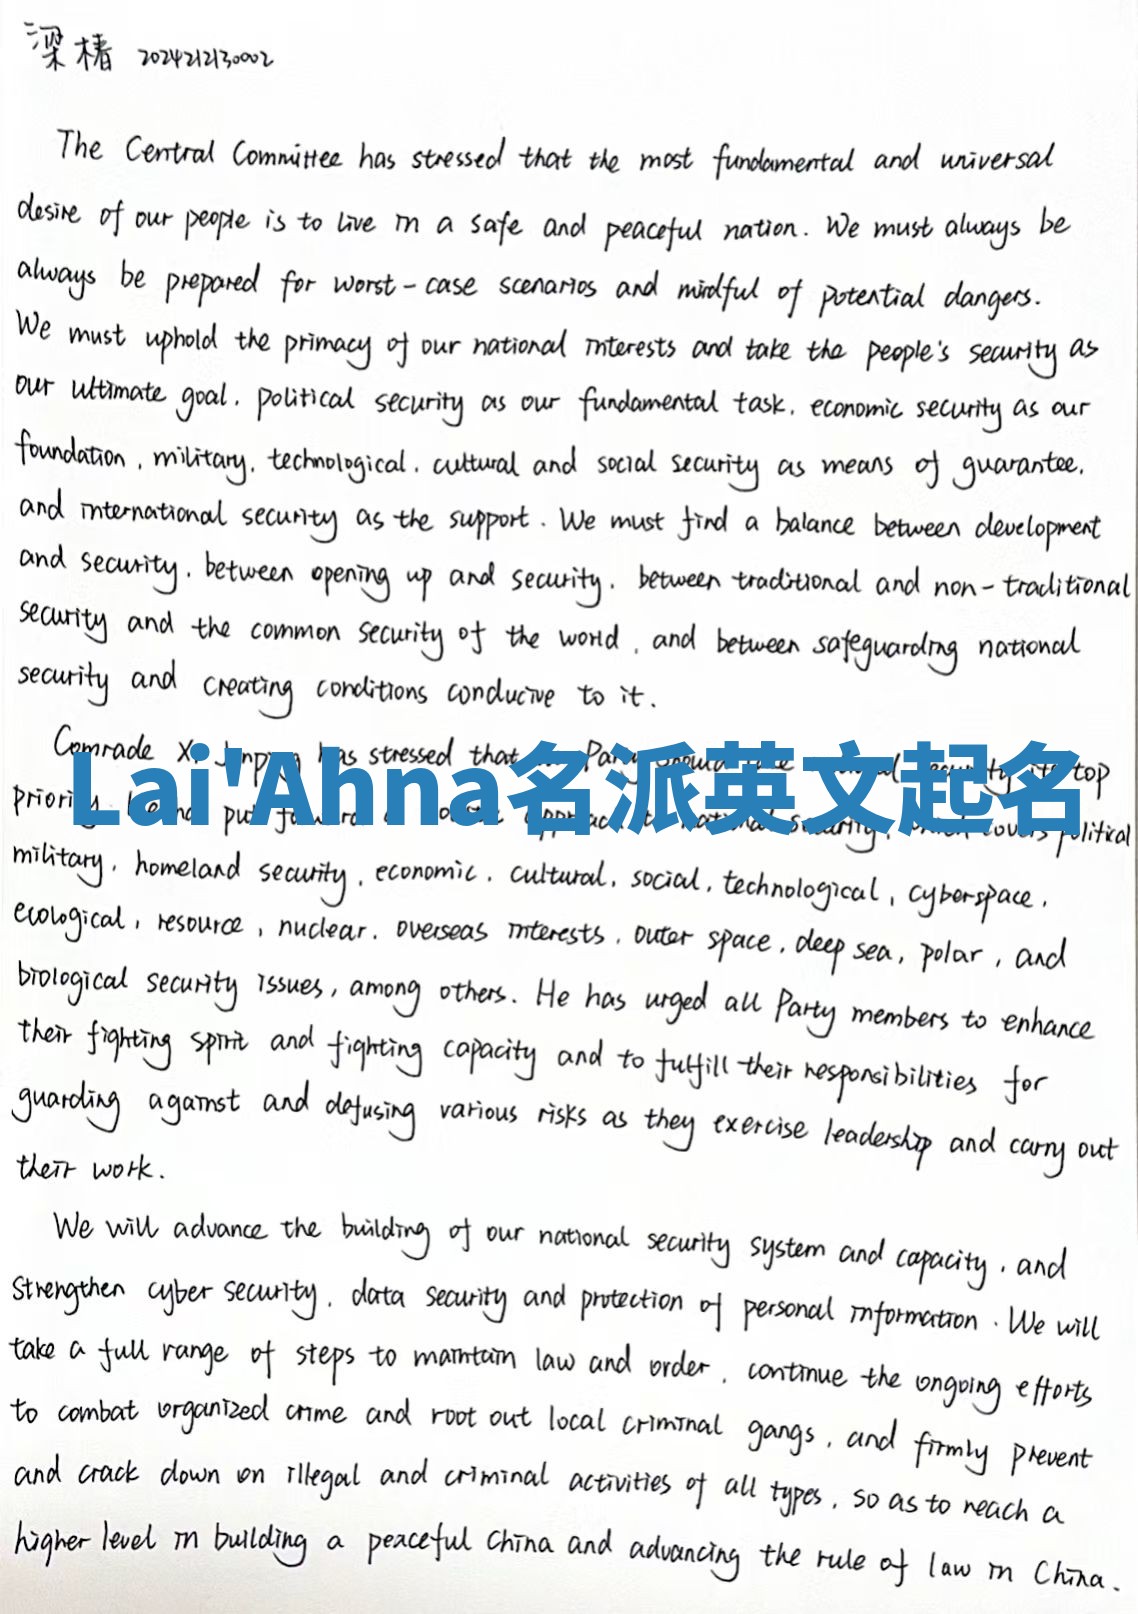 梁椿 2024212130002
The Central Committee has stressed that the most fundamental and universal
desire of our people is to live in a safe and peaceful nation. We must always be
always be prepared for worst-case scenarios and mindful of potential dangers.
We must uphold the primacy of our national interests and take the people's security as
our ultimate goal, political security as our fundamental task, economic security as our
foundation, military, technological, cultural and social security as means of guarantee,
and international security as the support. We must find a balance between development
and security, between opening up and security, between traditional and non-traditional
security and the common security of the world, and between safeguarding national
security and creating conditions conducive to it.
Comrade Xi Jinping has stressed that Party should security its top
Lai'Ahna名派英文起名
priority put forward approach to national security, which covers political
military, homeland security, economic, cultural, social, technological, cyberspace,
ecological, resource, nuclear, overseas interests, outer space, deep sea, polar, and
biological security issues, among others. He has urged all Party members to enhance
their fighting spirit and fighting capacity and to fulfill their responsibilities for
guarding against and defusing various risks as they exercise leadership and carry out
their work.
We will advance the building of our national security system and capacity, and
strengthen cyber security, data security and protection of personal information. We will
take a full range of steps to maintain law and order, continue the ongoing efforts
to combat organized crime and root out local criminal gangs, and firmly prevent
and crack down on illegal and criminal activities of all types, so as to reach a
higher level in building a peaceful China and advancing the rule of law in China.